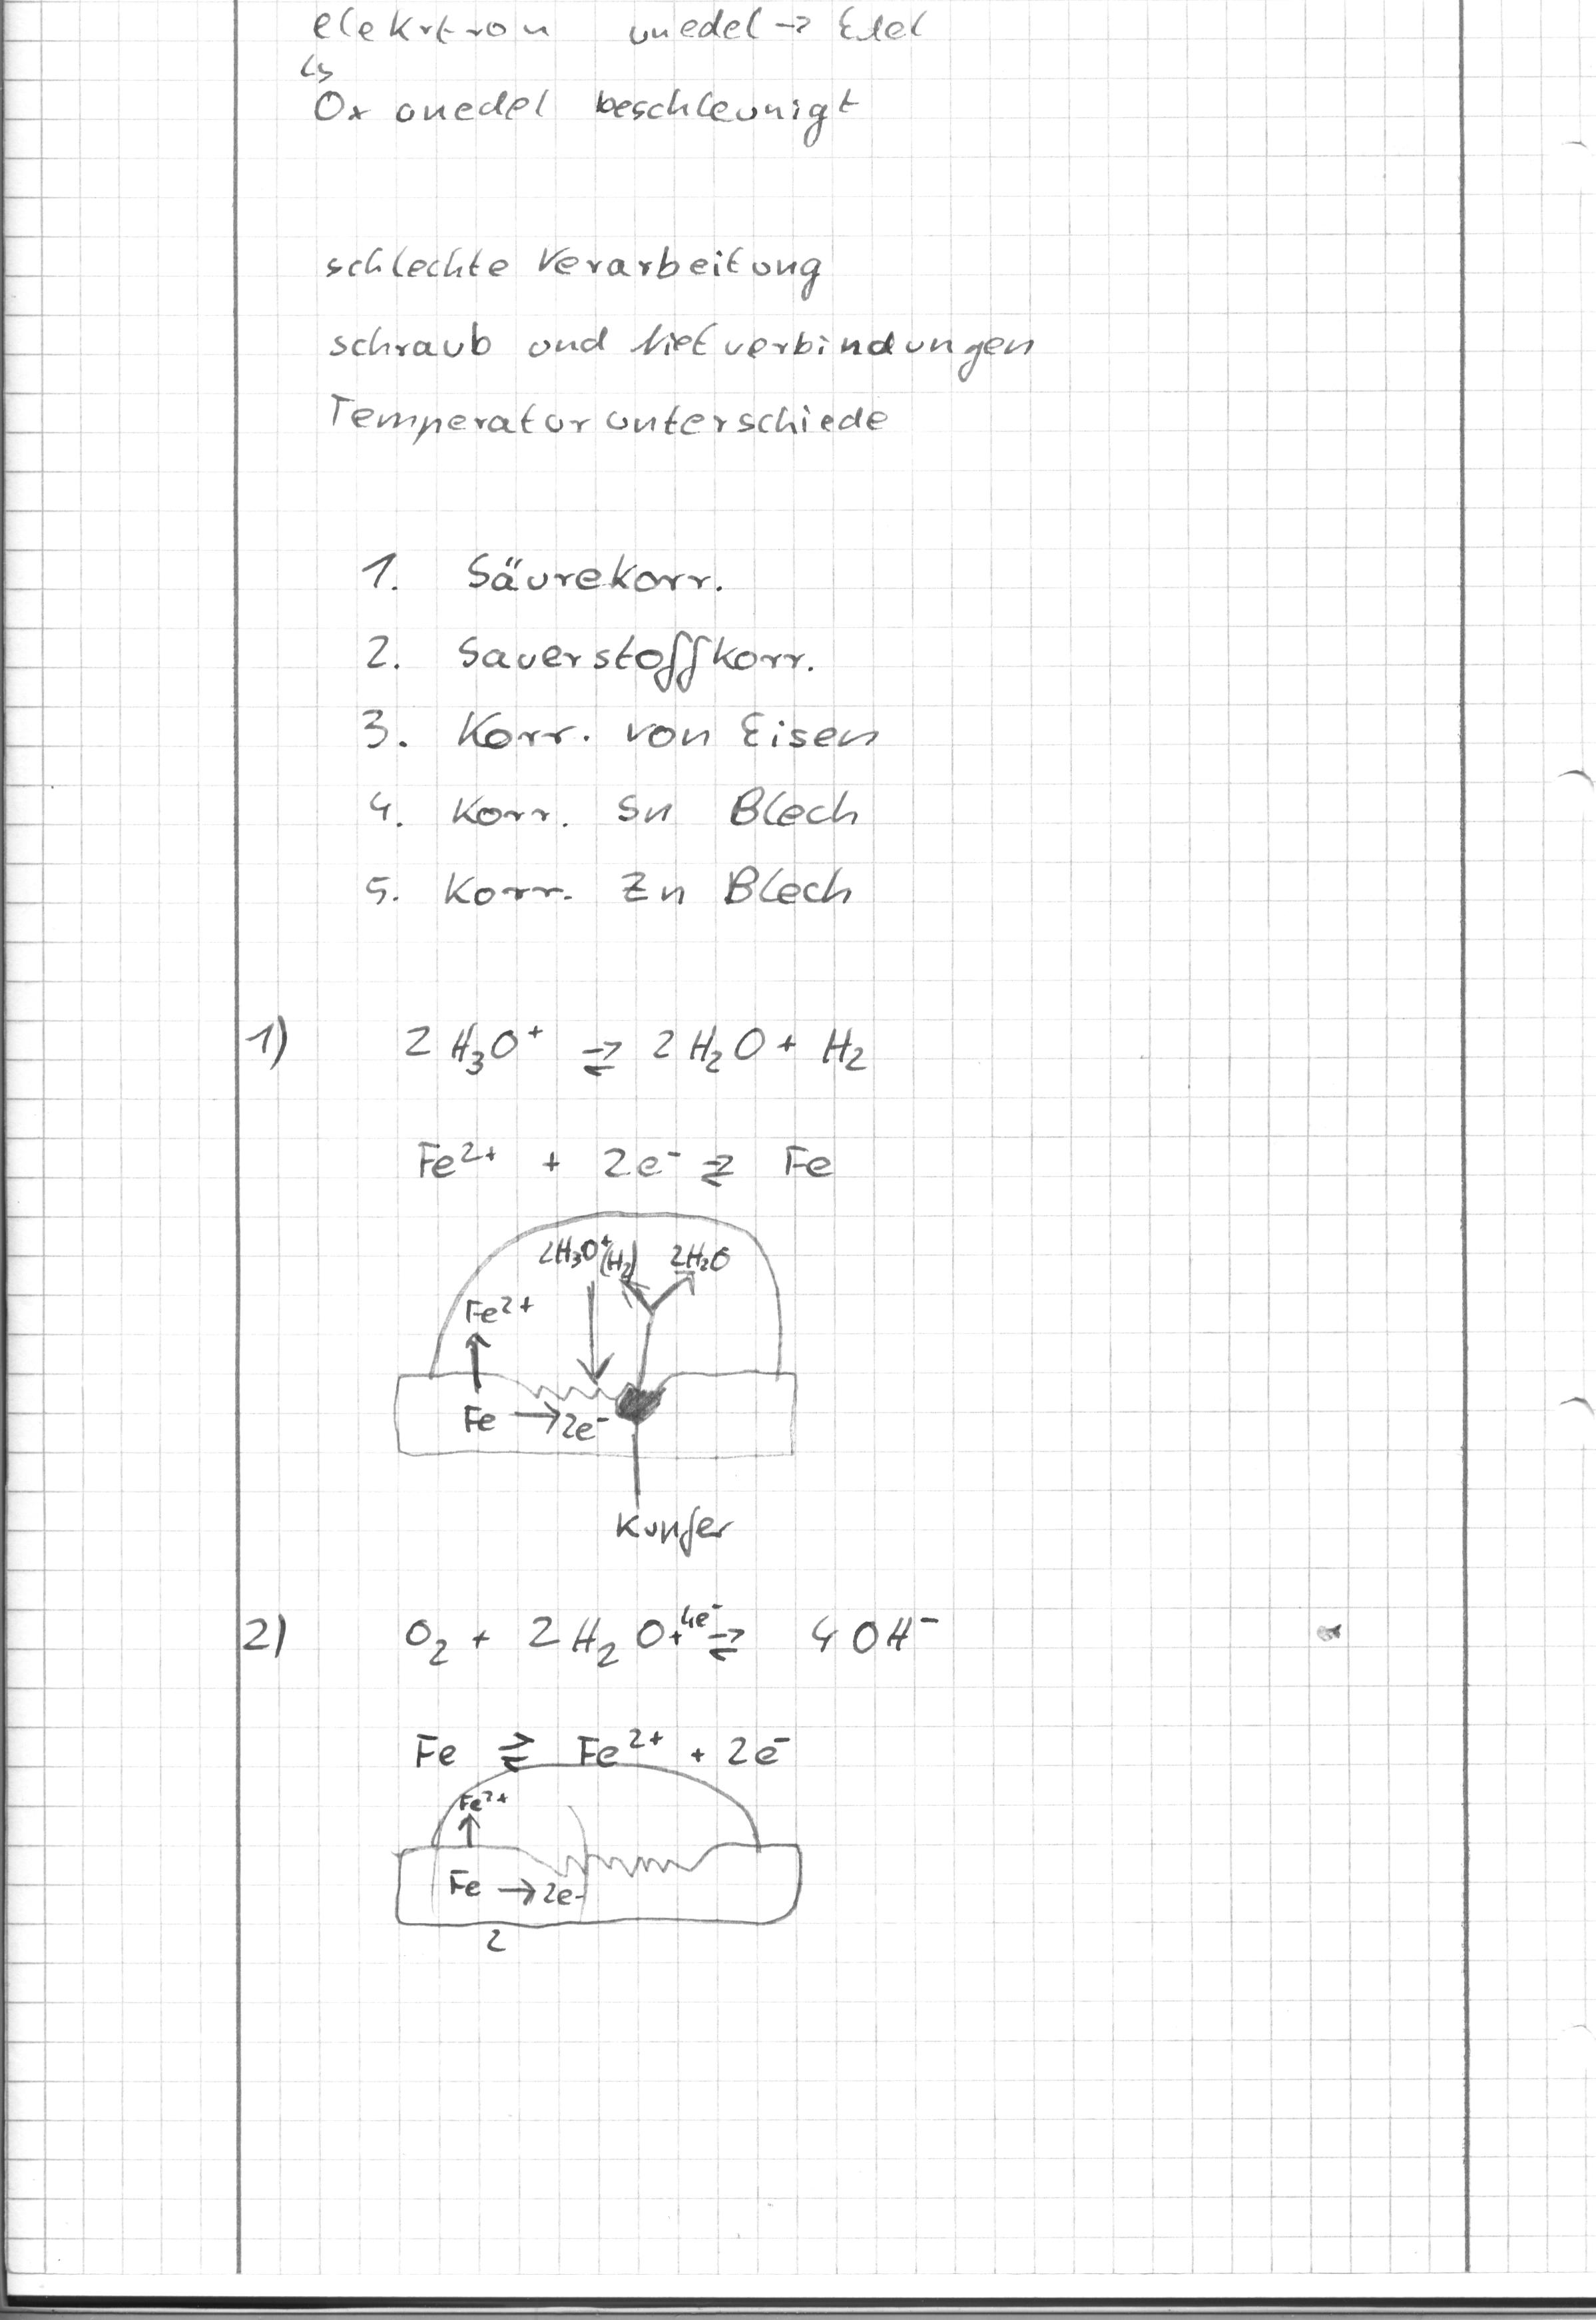 elekrtron unedel → Edel
↳
Ox unedel beschleunigt
schlechte Verarbeitung
schraub und Nietverbindungen
Temperaturunterschiede
1. Säurekorr.
2. Sauerstoffkorr.
3. Korr. von Eisen
4. Korr. Sn Blech
5. Korr. Zn Blech
1) 2 H₃O⁺ ⇌ 2 H₂O + H₂
Fe²⁺ + 2e⁻ ⇌ Fe
2H₃O⁺ (H₂) 2H₂O
Fe²⁺
Fe → 2e⁻
Kupfer
2) O₂ + 2 H₂O + 4e⁻ ⇌ 4 OH⁻
Fe ⇌ Fe²⁺ + 2e⁻
Fe²⁺
Fe → 2e-
2